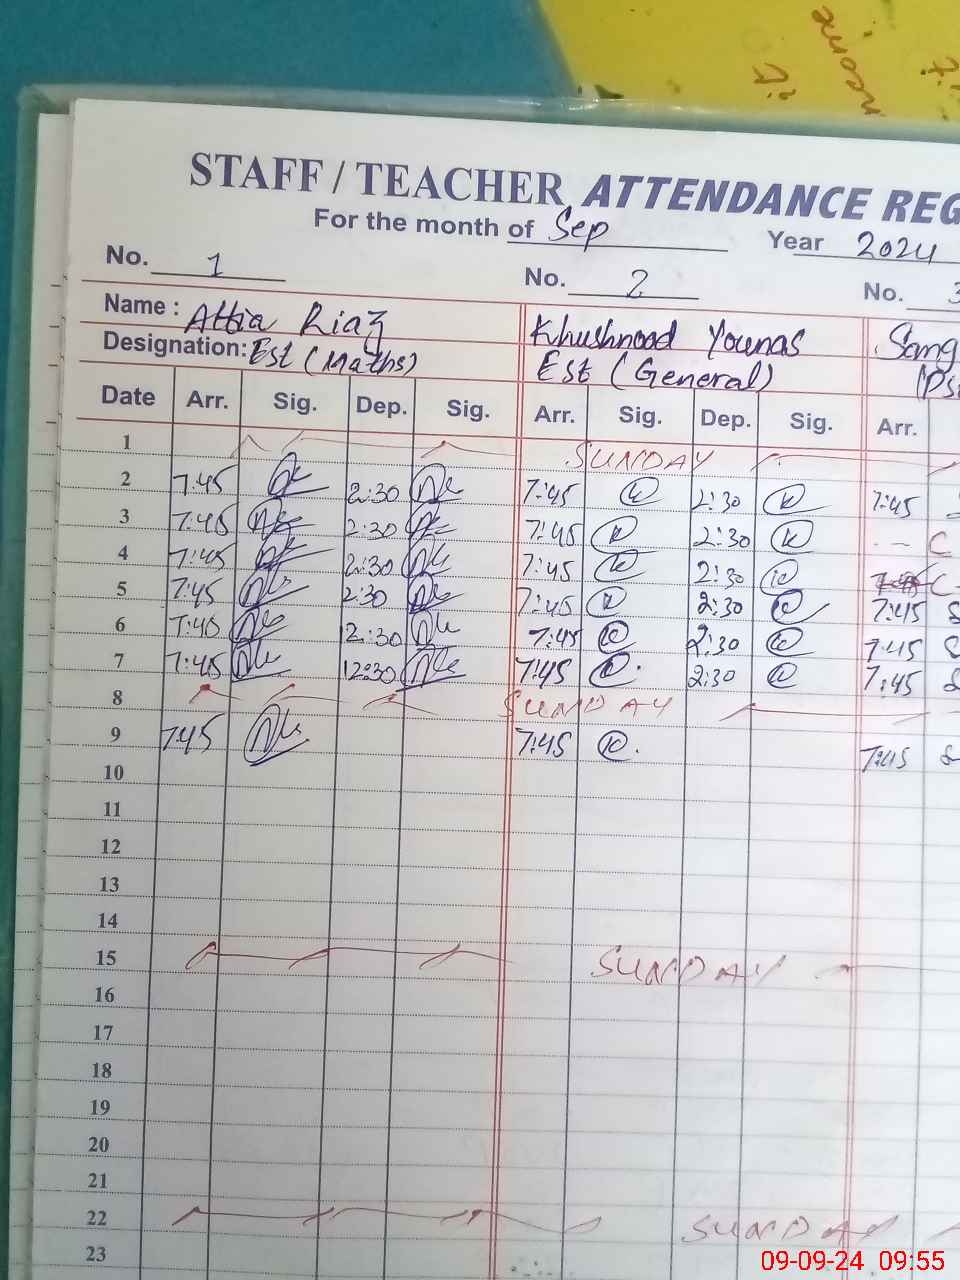 STAFF / TEACHER ATTENDANCE REG
For the month of Sep Year 2024
No. 1 No. 2 No. 3
Name : Attia Riaz Khushnood Younas Sang
Designation: Est (Maths) Est (General) (Ps
Date Arr. Sig. Dep. Sig. Arr. Sig. Dep. Sig. Arr.
1 SUNDAY
2 7:45 2:30 7:45 2:30 7:45
3 7:45 2:30 7:45 2:30 C
4 7:45 2:30 7:45 2:30 C
5 7:45 2:30 7:45 2:30 7:45
6 7:45 2:30 7:45 2:30 7:45
7 7:45 12:30 7:45 2:30 7:45
8 SUNDAY
9 7:45 7:45 7:45
10
11
12
13
14
15 SUNDAY
16
17
18
19
20
21
22 SUNDAY
23
09-09-24 09:55